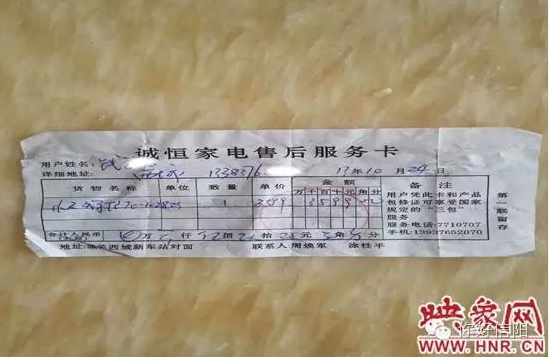 诚恒家电售后服务卡
用户姓名:
详细地址: 1338376 13年10月24日
货物名称 单位 数量 单价 金额 备注
万 千 百 十 元 角 分
1 3599 3599
用户凭此卡和产品
包修证可享受国家
规定的“三包”
服务
服务电话:7710707
手机:13937652070
第一联留存
合计人民币 万 仟 佰 拾 元 角 分
地址: 关西城新车站对面 联系人:周焕军 涂桂平
映象网
你好信阳
HTTP://WWW.HNR.CN